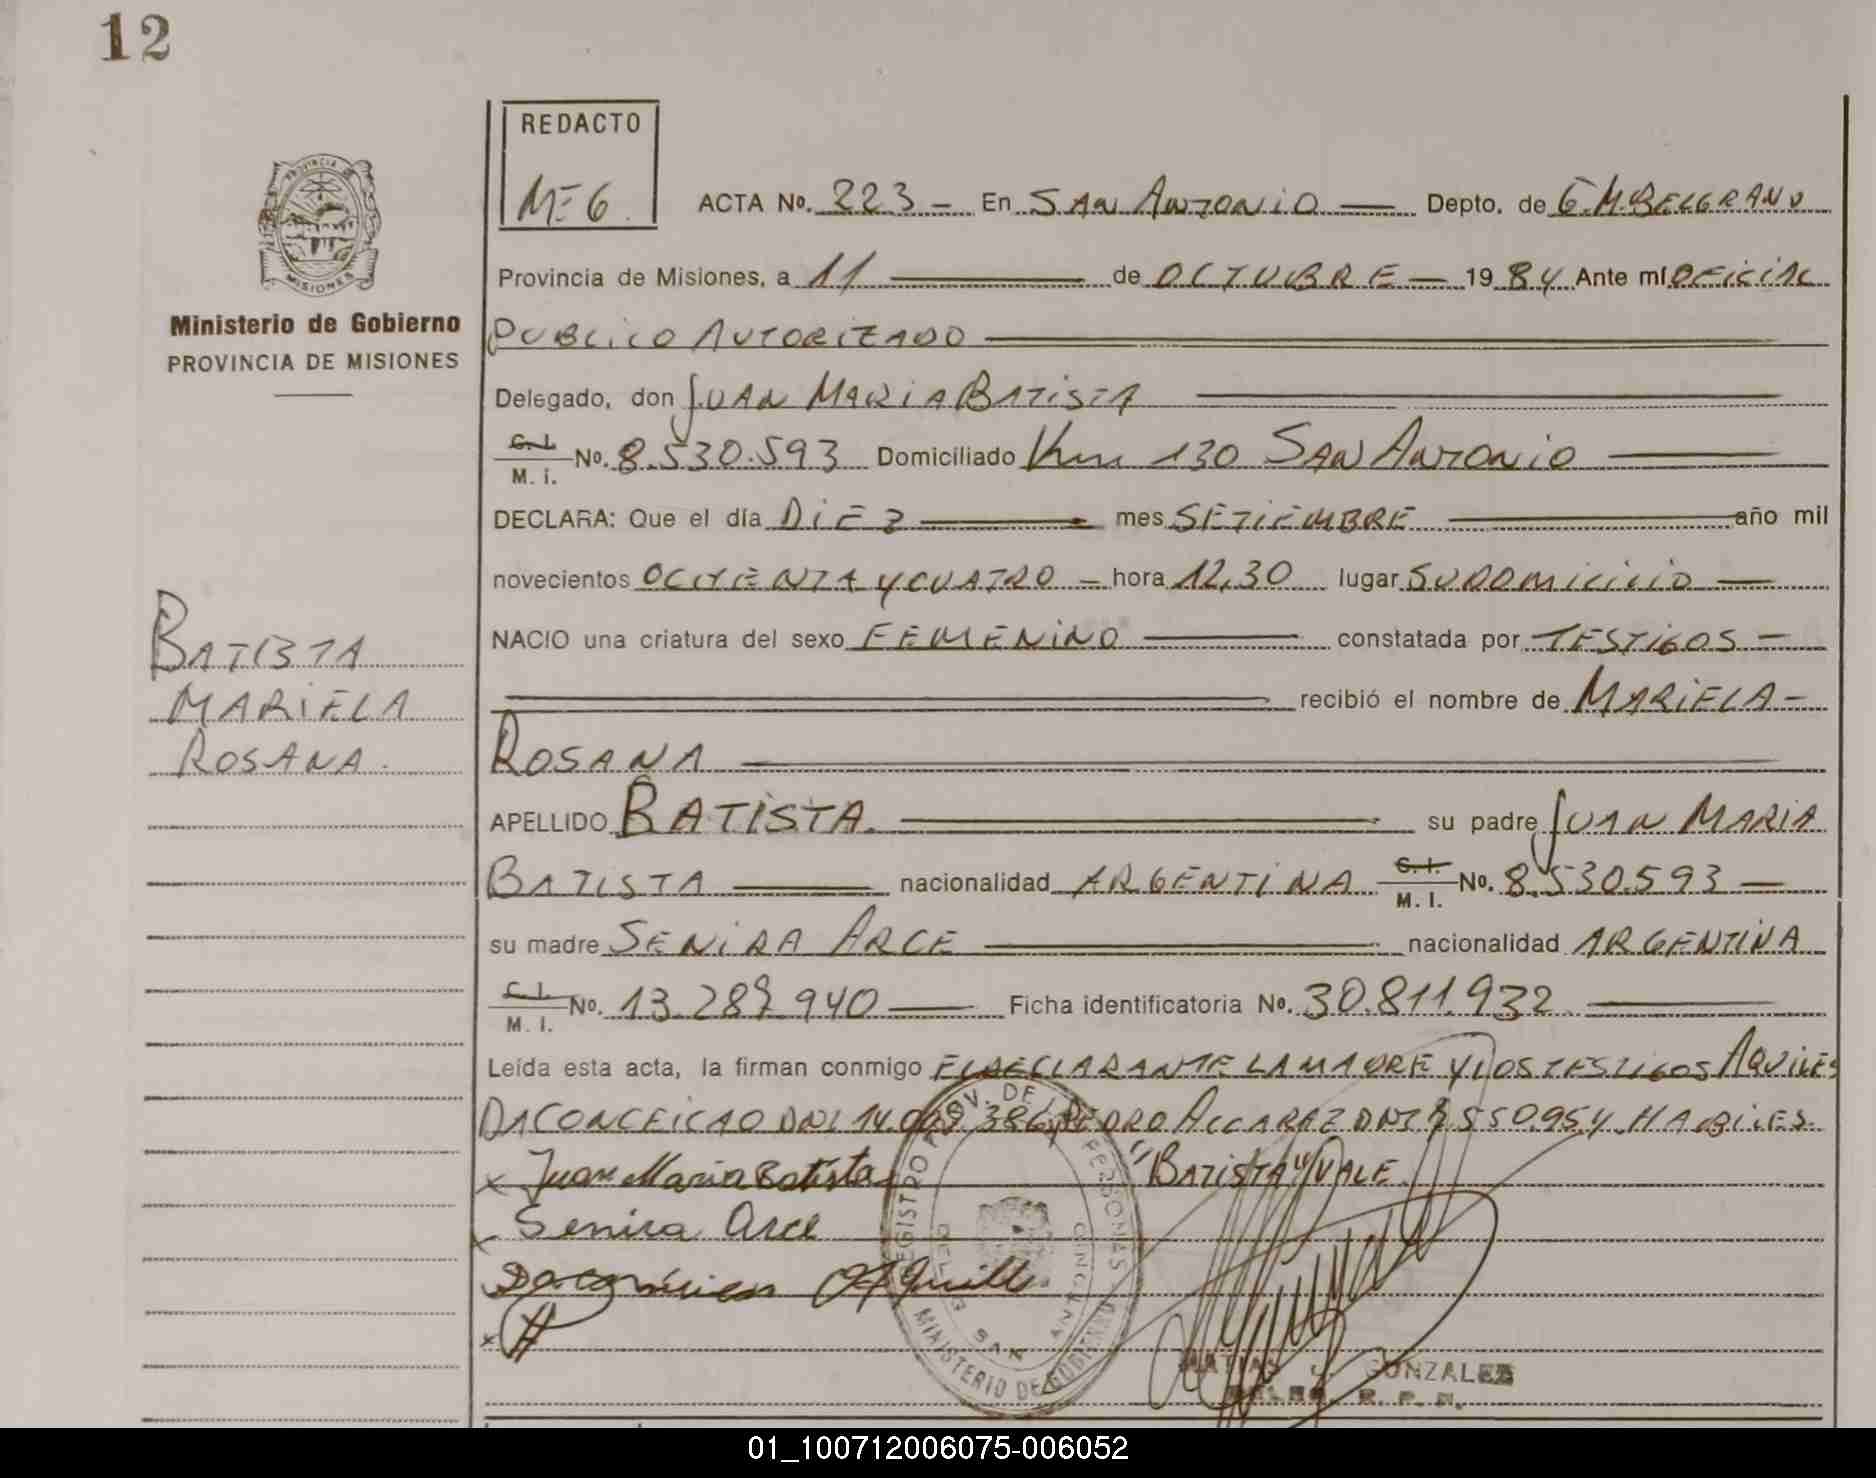 12
REDACTO
ME G.
ACTA No. 223 - En SAN ANTONIO — Depto. de G.M. BELGRANO
PROVINCIA DE
MISIONES
Ministerio de Gobierno
PROVINCIA DE MISIONES
Provincia de Misiones, a 11 — de OCTUBRE — 1984 Ante mí OFICIAL
PUBLICO AUTORIZADO —
Delegado, don JUAN MARIA BATISTA —
C. I. / M. I. No. 8.530.593 Domiciliado Km 130 SAN ANTONIO —
DECLARA: Que el día DIEZ — mes SETIEMBRE — año mil
novecientos OCHENTA Y CUATRO — hora 12,30 lugar SU DOMICILIO —
NACIO una criatura del sexo FEMENINO — constatada por TESTIGOS —
— recibió el nombre de MARIELA —
ROSANA —
BATISTA
MARIELA
ROSANA.
APELLIDO BATISTA. — su padre JUAN MARIA
BATISTA — nacionalidad ARGENTINA C. I. / M. I. No. 8.530.593 —
su madre SENIRA ARCE — nacionalidad ARGENTINA
C. I. / M. I. No. 13.287.940 — Ficha identificatoria No. 30.811.932 —
Leída esta acta, la firman conmigo EL DECLARANTE LA MADRE Y LOS TESTIGOS AQUILES
DACONCEICAO DNI 14.0 386 PEDRO ALCARAZ DNI 550.954 HABILES.
x Juan Maria Batista "BATISTA" VALE
x Senira Arce
x
REGISTRO PROV. DE LAS PERSONAS
MINISTERIO DE GOBIERNO
SAN ANTONIO
MATIAS J. GONZALEZ
DELEG. R. P. P.
01_100712006075-006052